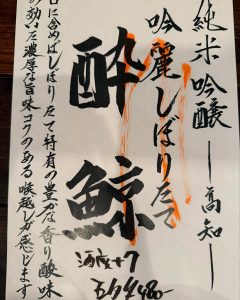 純米吟醸―高知―
吟麗しぼりたて
酔鯨
酒度+7
口に含めばしぼりたて特有の豊かな香り酸味
の効いた濃厚な旨味コクのある喉越しが感じます